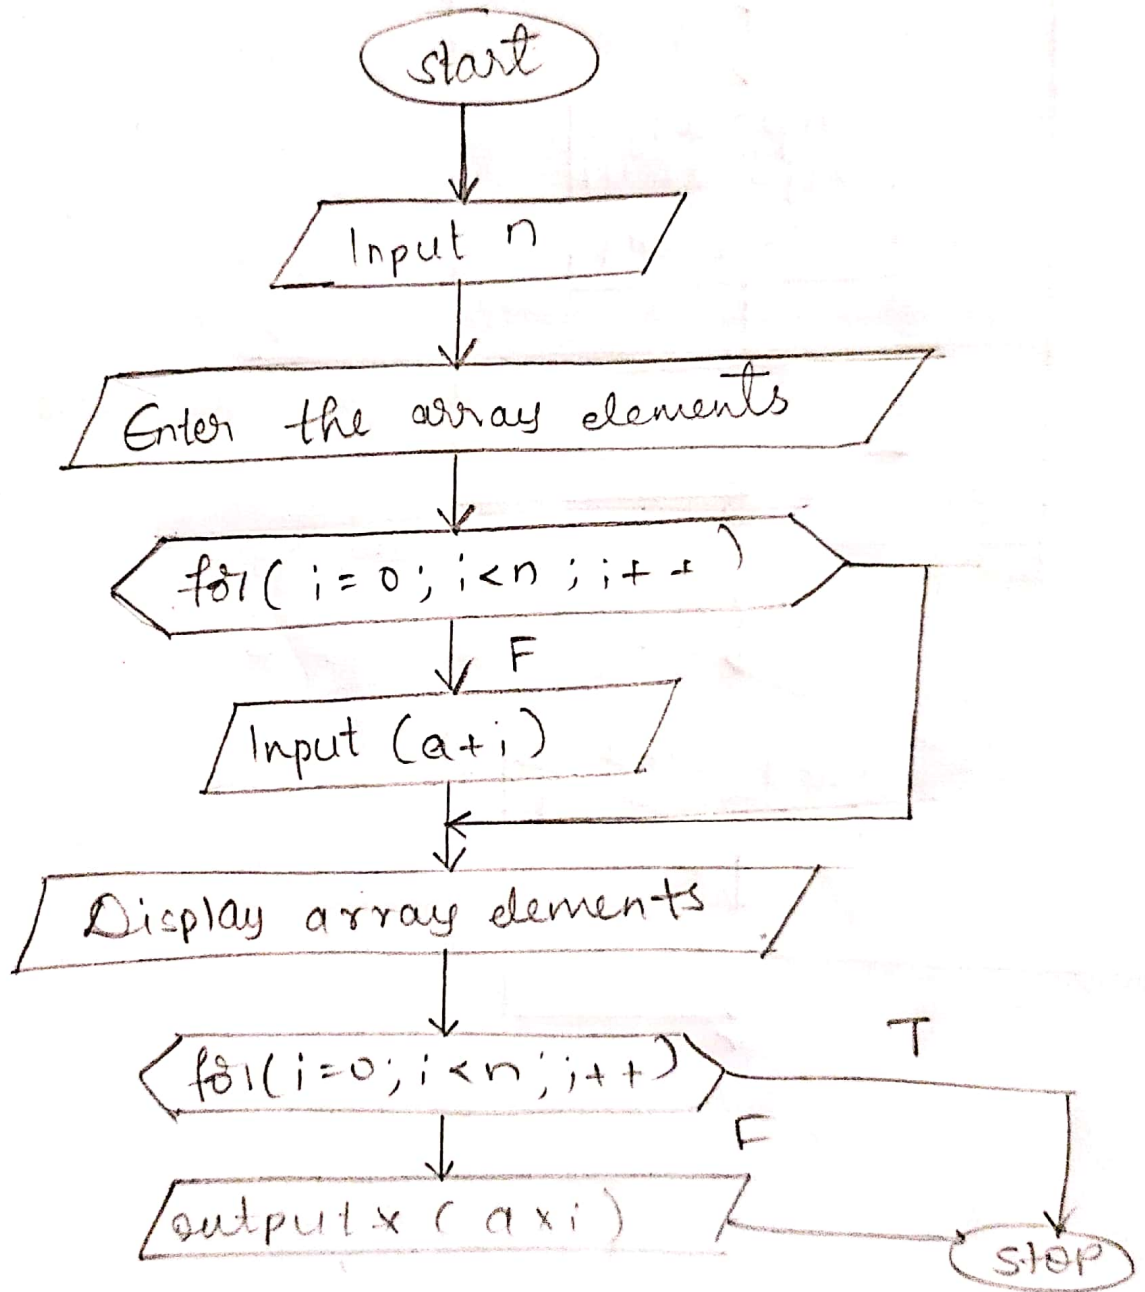 start
Input n
Enter the array elements
for( i = 0 ; i < n ; i + + )
F
Input (a+i)
Display array elements
T
for( i = 0 ; i < n ; i + + )
F
output * ( a x i )
stop